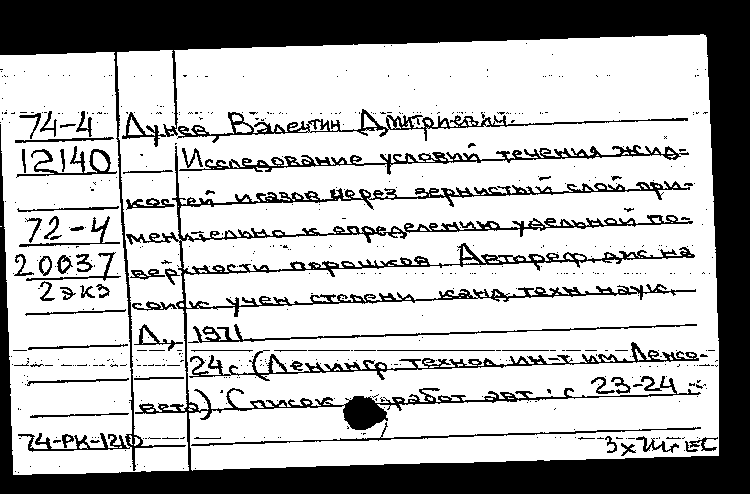 74-4 Лунев, Валентин Дмитриевич.
12140 Исследование условий течения жид=
костей и газов через зернистый слой при-
72-4 менительно к определению удельной по-
20037 верхности порошков. Автореф. дис. на
2 экз соиск. учен. степени канд. техн. наук.
Л., 1971.
24 с (Ленингр. технол. ин-т им. Ленсо-
вета). Список работ авт.: с. 23-24.
74-РК-1210